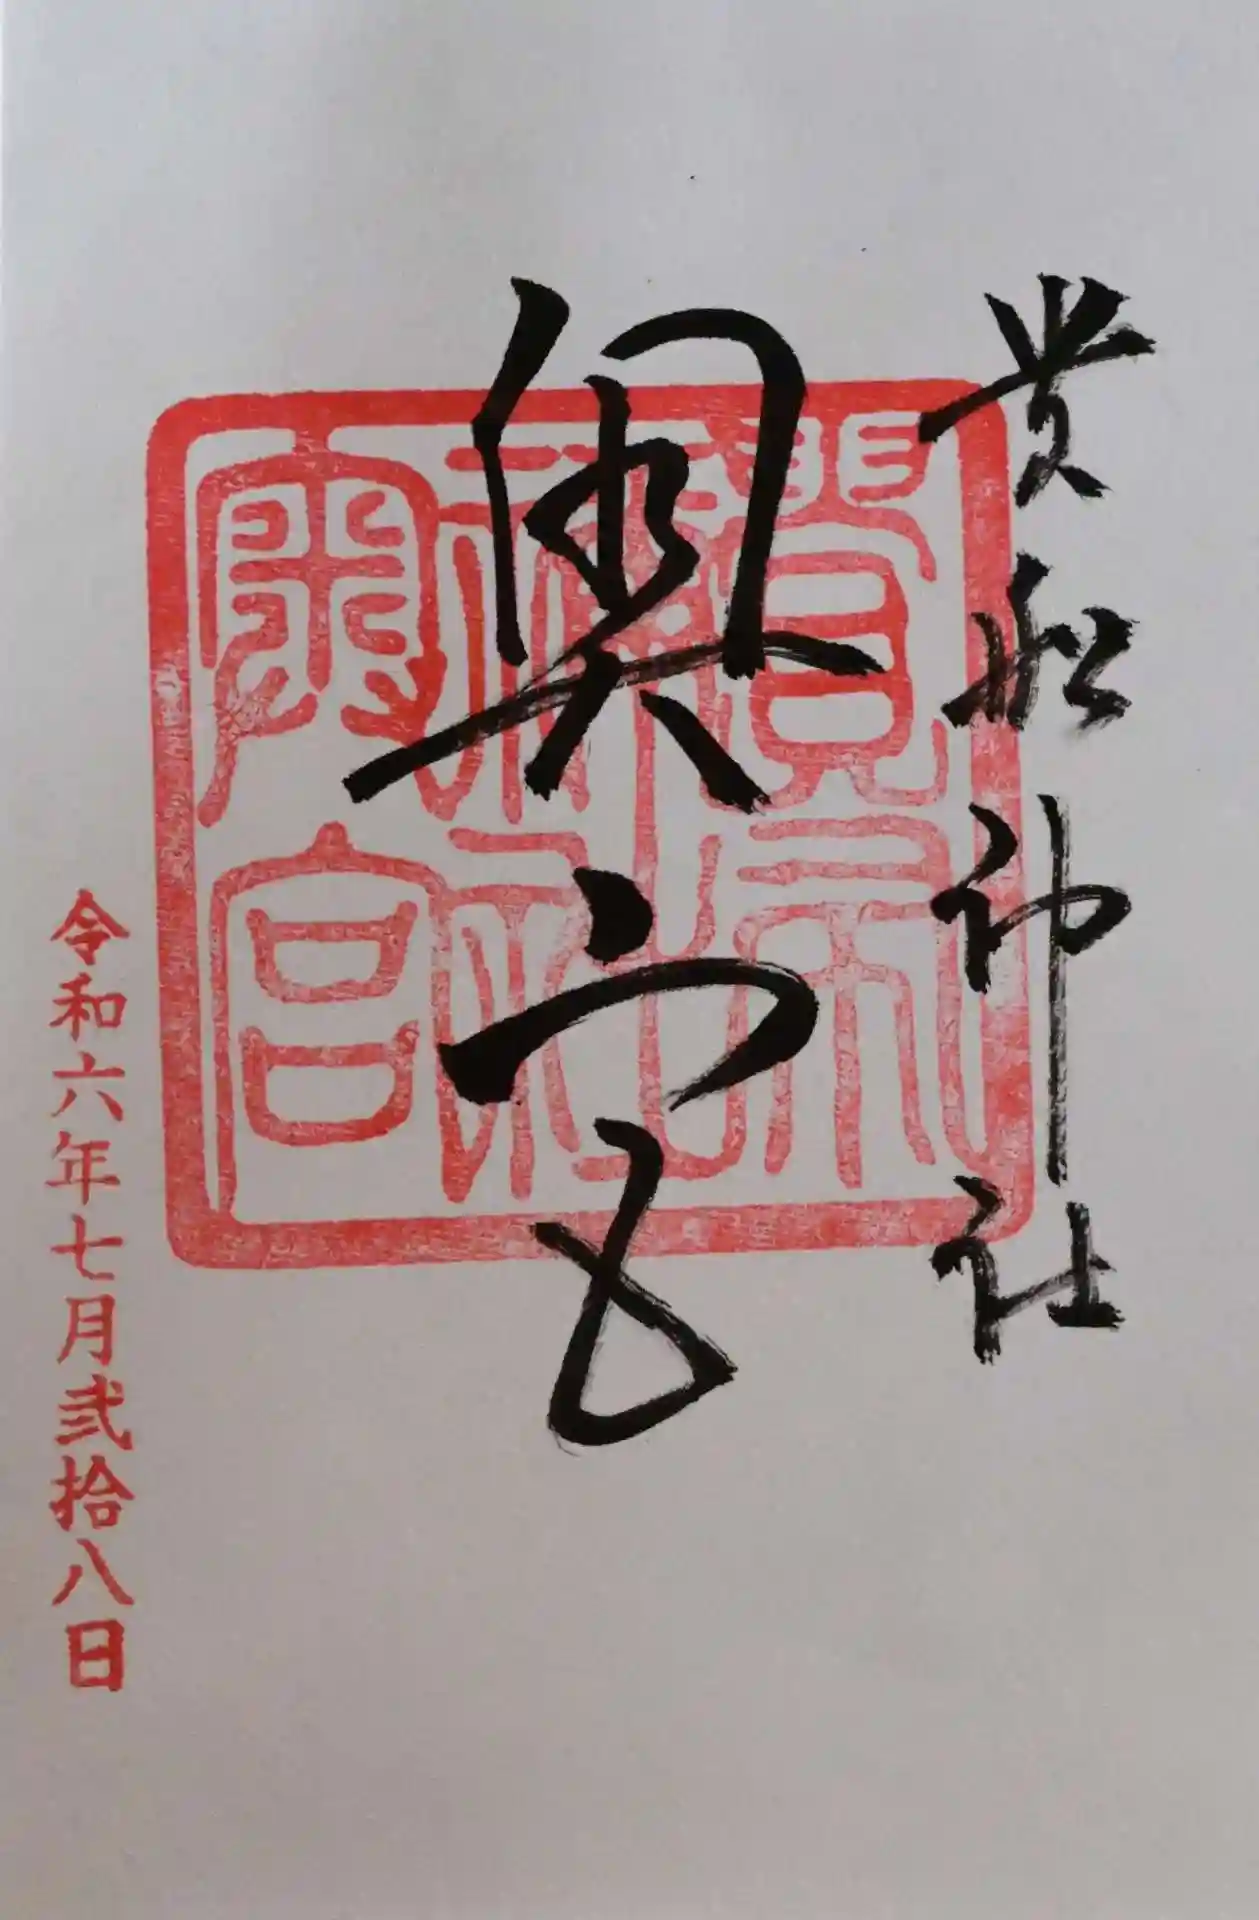 貴船神社
奥宮
令和六年七月弐拾八日